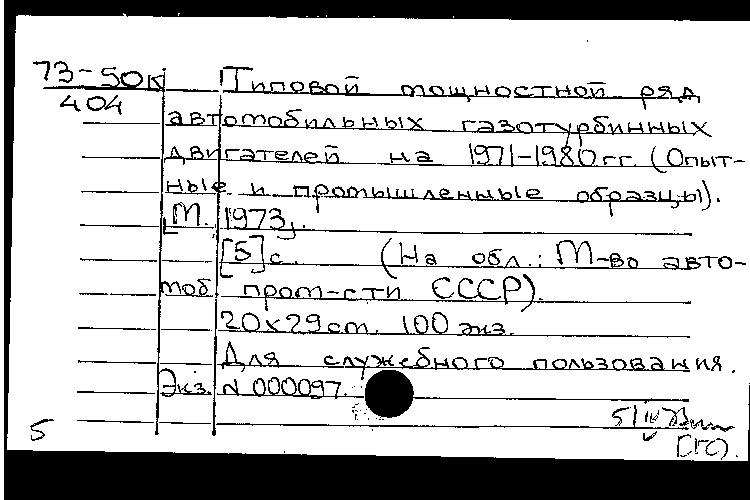 73-50к
404
Типовой мощностной ряд
автомобильных газотурбинных
двигателей на 1971-1980гг. (Опыт-
ные и промышленные образцы).
[М. 1973].
[5]с. (На обл.: М-во авто-
моб. пром-сти СССР).
20х29см. 100 экз.
Для служебного пользования.
Экз. N 000097.
5
[ГС].